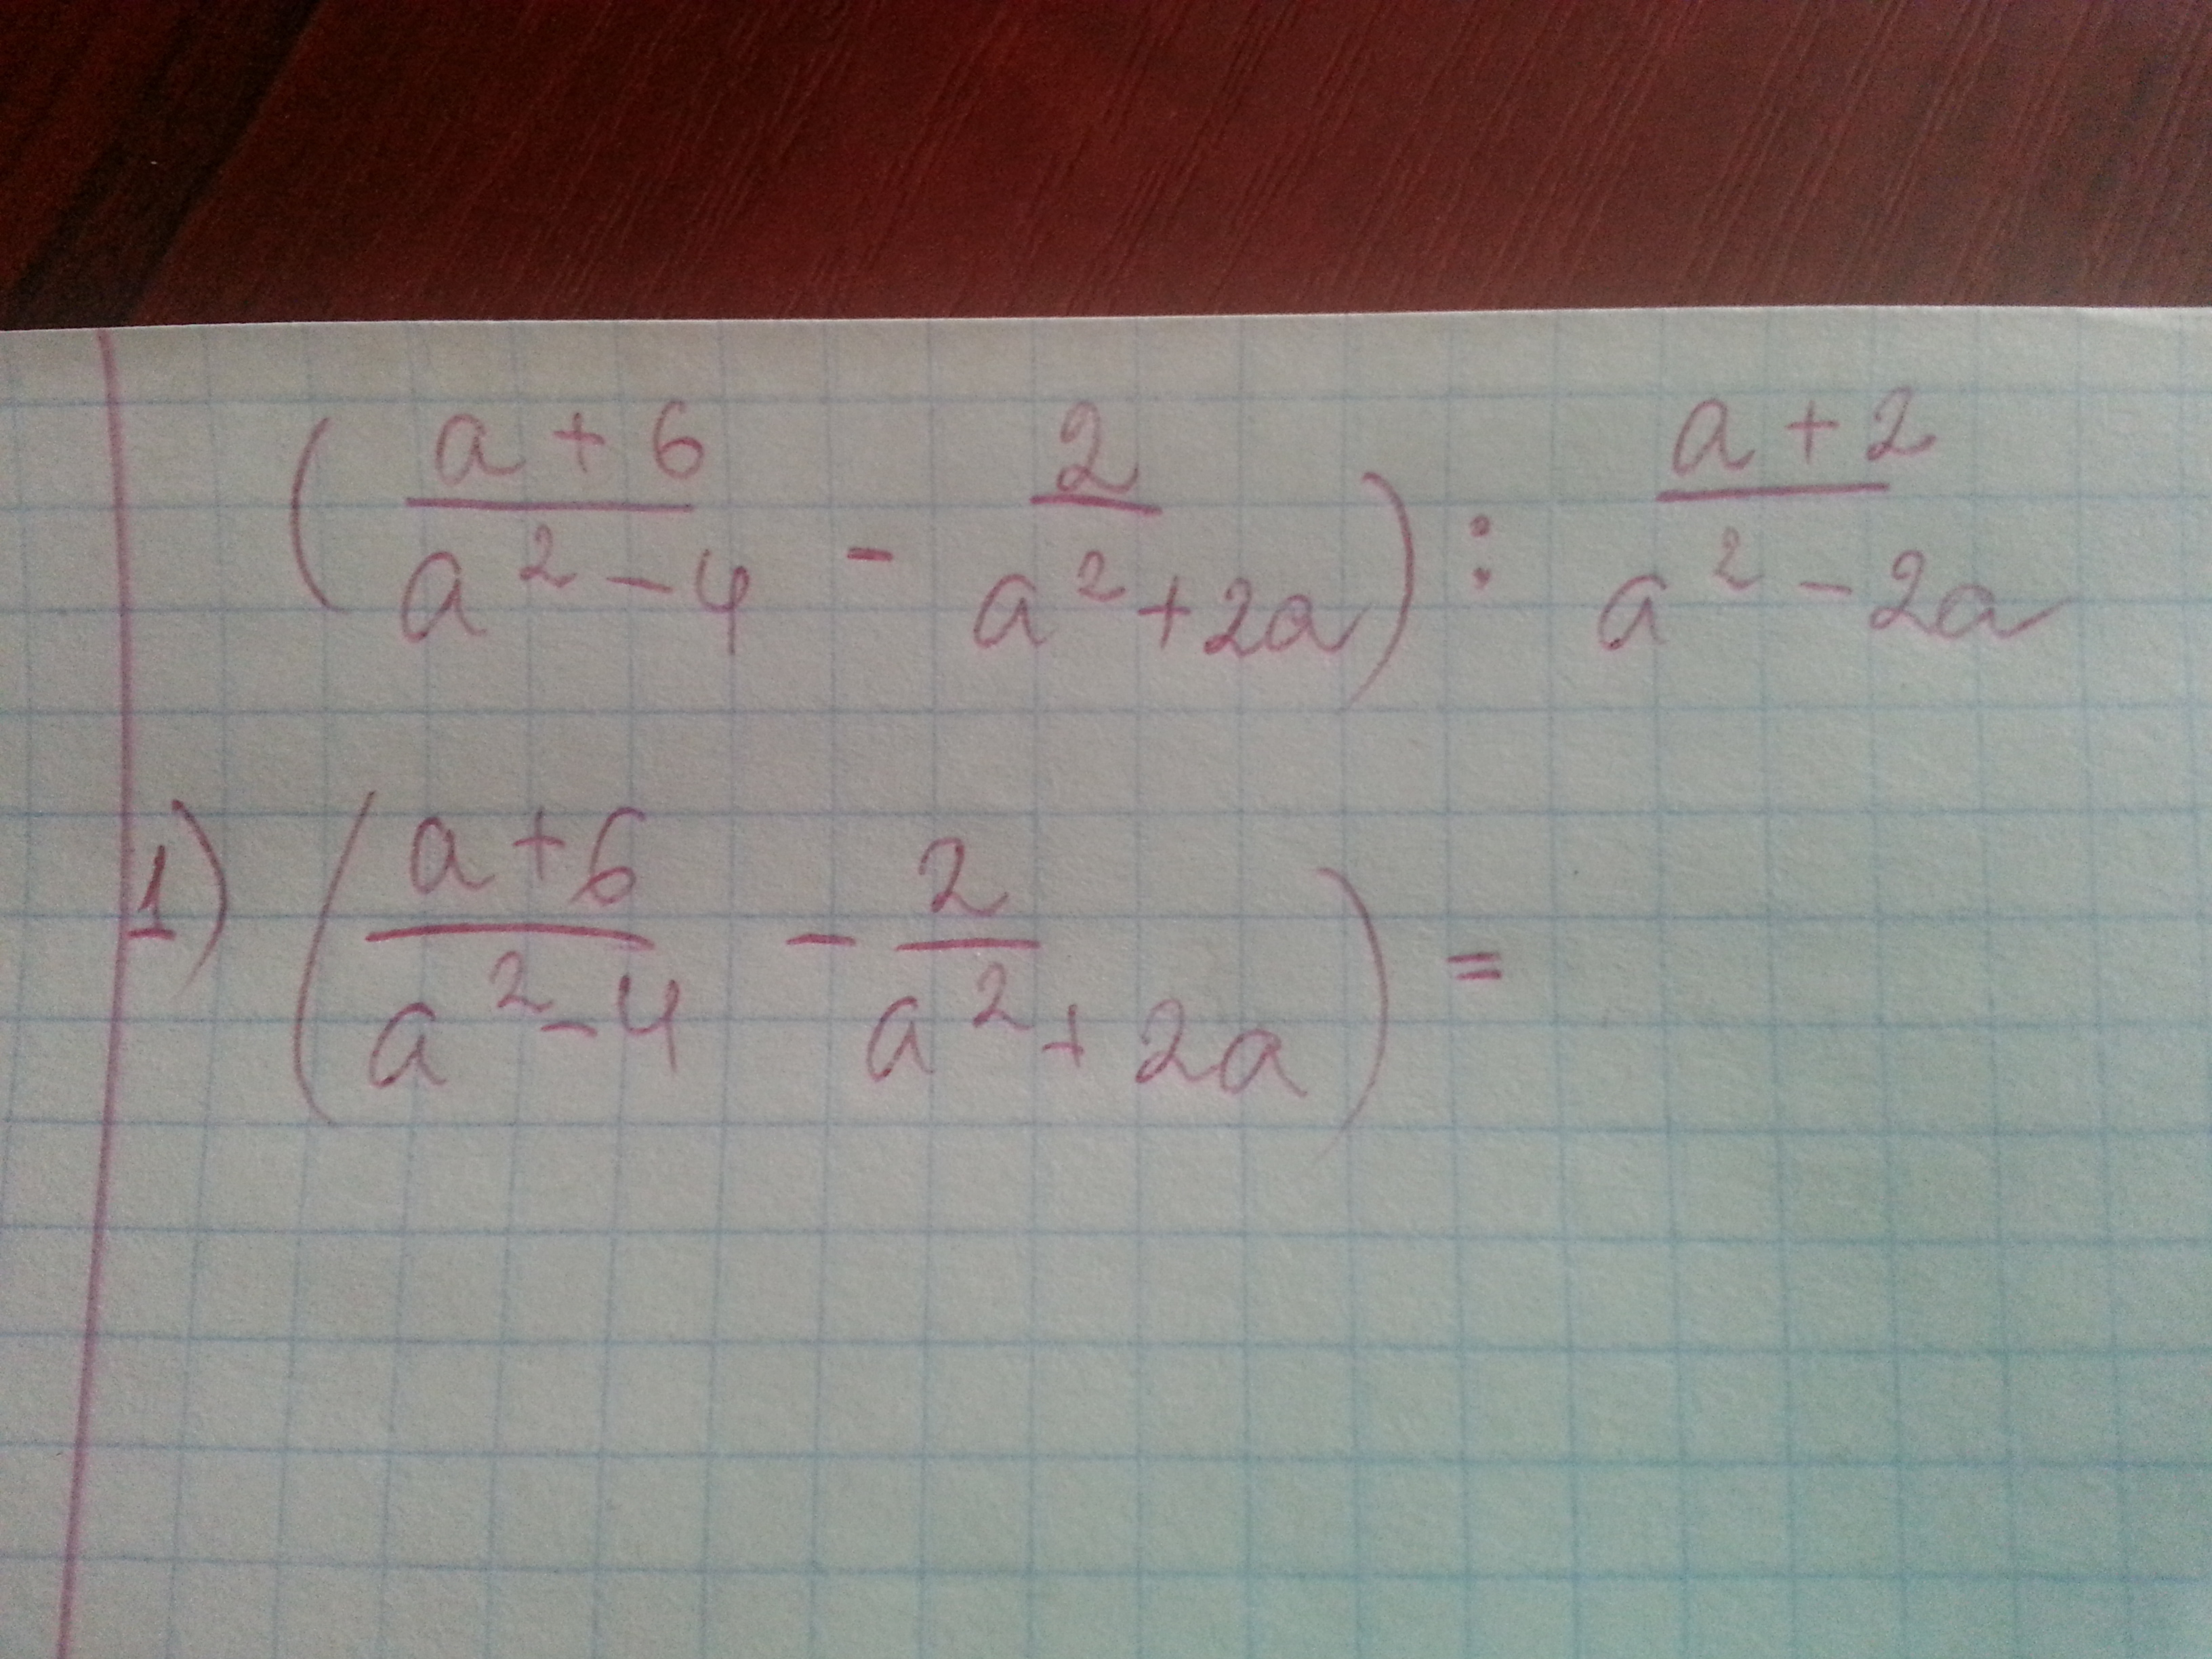 ( (a + 6)/(a² - 4) - 2/(a² + 2a) ) : (a + 2)/(a² - 2a)
1) ( (a + 6)/(a² - 4) - 2/(a² + 2a) ) =